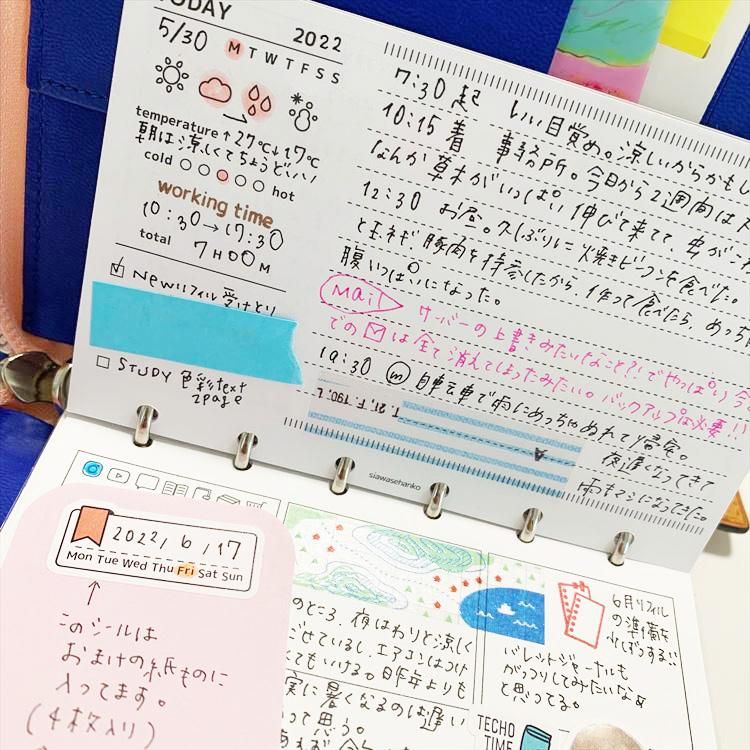 TODAY 2022
5/30 M T W T F S S
temperature ↑27℃ ↓17℃
朝は涼しくてちょうどいい
cold hot
working time
10:30→17:30
total 7H00M
Newリフィル受けとり
STUDY 色彩text
2page
7:30 起 いい目覚め。涼しいからかもし
10:15 着 事務所。今日から2週間は
なんか草木がいっぱい伸びて来てて、虫が
12:30 お昼。久しぶりに焼きビーフンを食べた。
と玉ネギ、豚肉を持参したから、作って食べたら、めっち
腹いっぱいになった。
Mail サーバーの上書きみたいなこと?!でやっぱり今
での✉は全て消えてしまったみたい。バックアップは必要!!
19:30 m 自転車で雨にめっちゃぬれて帰宅。
夜遅くなってきて
雨もマシになってきた。
siawasehanko
2022/6/17
Mon Tue Wed Thu Fri Sat Sun
↑
このシールは
おまけの紙ものに
入ってます。
(4枚入り)
のところ、夜はわりと涼しく
ごせているし、エアコンはつけ
くてもいける。昨年よりも
実に暑くなるのは遅い
って思う。
6月リフィル
の準備を
バレットジャーナルも
がっつりしてみたいなぁ
と思ってる。
TECHO
TIME